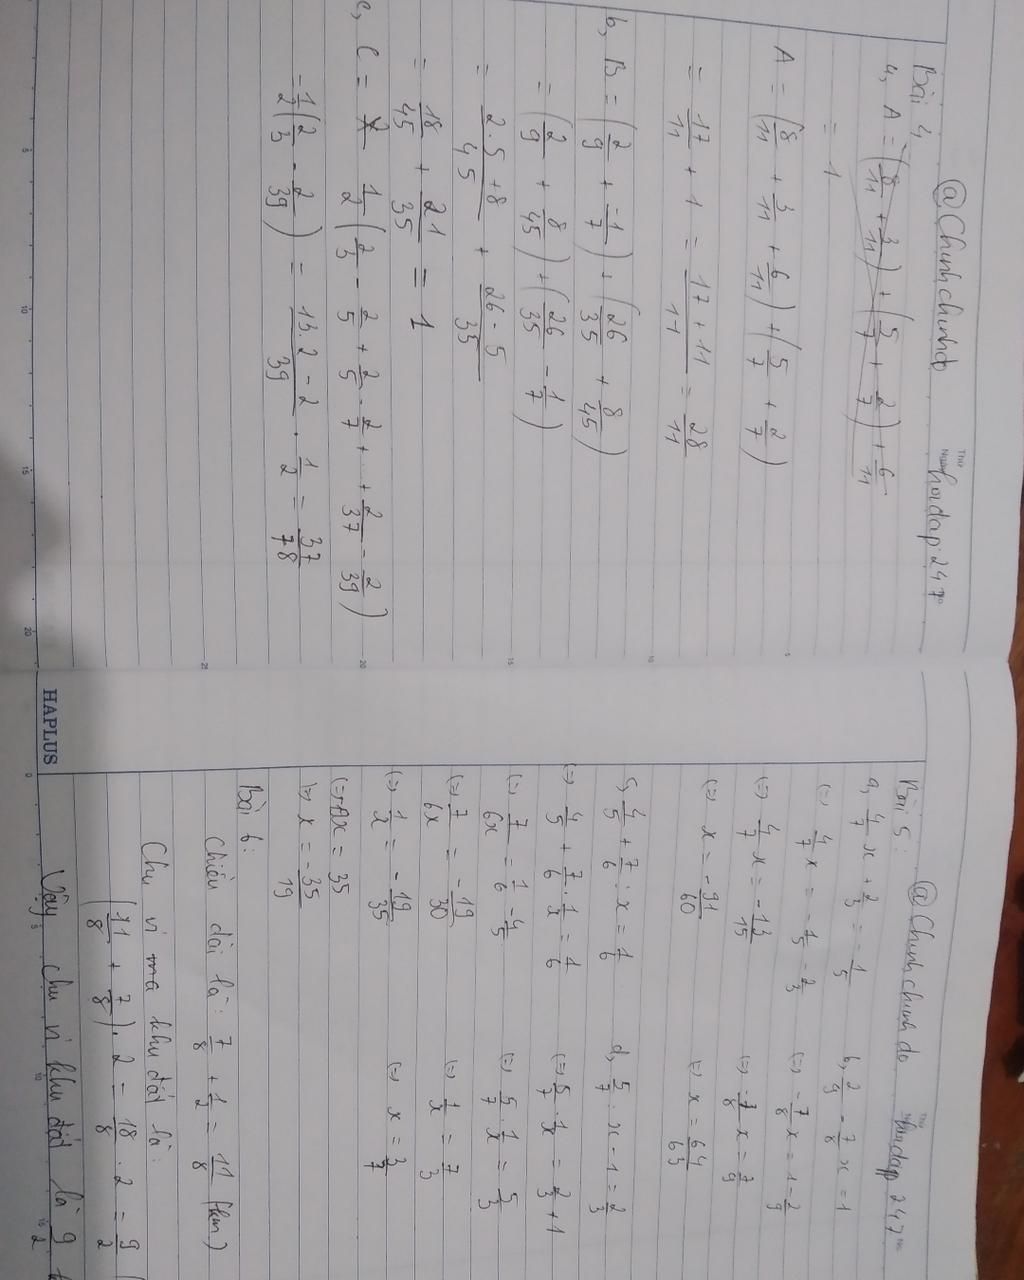 @Chinhchinhdo hoidap247
Thứ
Ngày
Bài 4
4, A = (8/11 + 3/11) + (5/7 + 2/7) + 6/11
= 1
A = (8/11 + 3/11 + 6/11) + (5/7 + 2/7)
= 17/11 + 1 = 17+11/11 = 28/11
b, B = (2/9 + -1/7) + (26/35 + 8/45)
= (2/9 + 8/45) + (26/35 - 1/7)
= 2.5+8/45 + 26-5/35
= 18/45 + 21/35 = 1
c, C = 1/2 (2/3 - 2/5 + 2/5 - 2/7 + ... + 2/37 - 2/39)
= 1/2 (2/3 - 2/39) = 13.2-2/39 . 1/2 = 37/78
5 10 15 20
@Chinhchinhdo hoidap247
Thứ
No.
Bài 5:
a, 4/7 x + 2/3 = -1/5
(=) 4/7 x = -1/5 - 2/3
(=) 4/7 x = -13/15
(=) x = -91/60
b, 2/9 - 7/8 x = 1
(=) -7/8 x = 1 - 2/9
(=) -7/8 x = 7/9
(=) x = 64/63
c, 4/5 + 7/6 : x = 1/6
(=) 4/5 + 7/6 . 1/x = 1/6
(=) 7/6x = 1/6 - 4/5
(=) 7/6x = -19/30
(=) 1/x = -19/35
x = 35
(=) x = -35/19
d, 5/7 : x - 1 = 2/3
(=) 5/7 . 1/x = 2/3 + 1
(=) 5/7 . 1/x = 5/3
(=) 1/x = 7/3
(=) x = 3/7
Bài 6:
Chiều dài là: 7/8 + 1/2 = 11/8 (km)
Chu vi mà khu đất là:
(11/8 + 7/8) . 2 = 18/8 . 2 = 9/2
Vậy chu vi khu đất là 9/2
HAPLUS
0 5 10 15